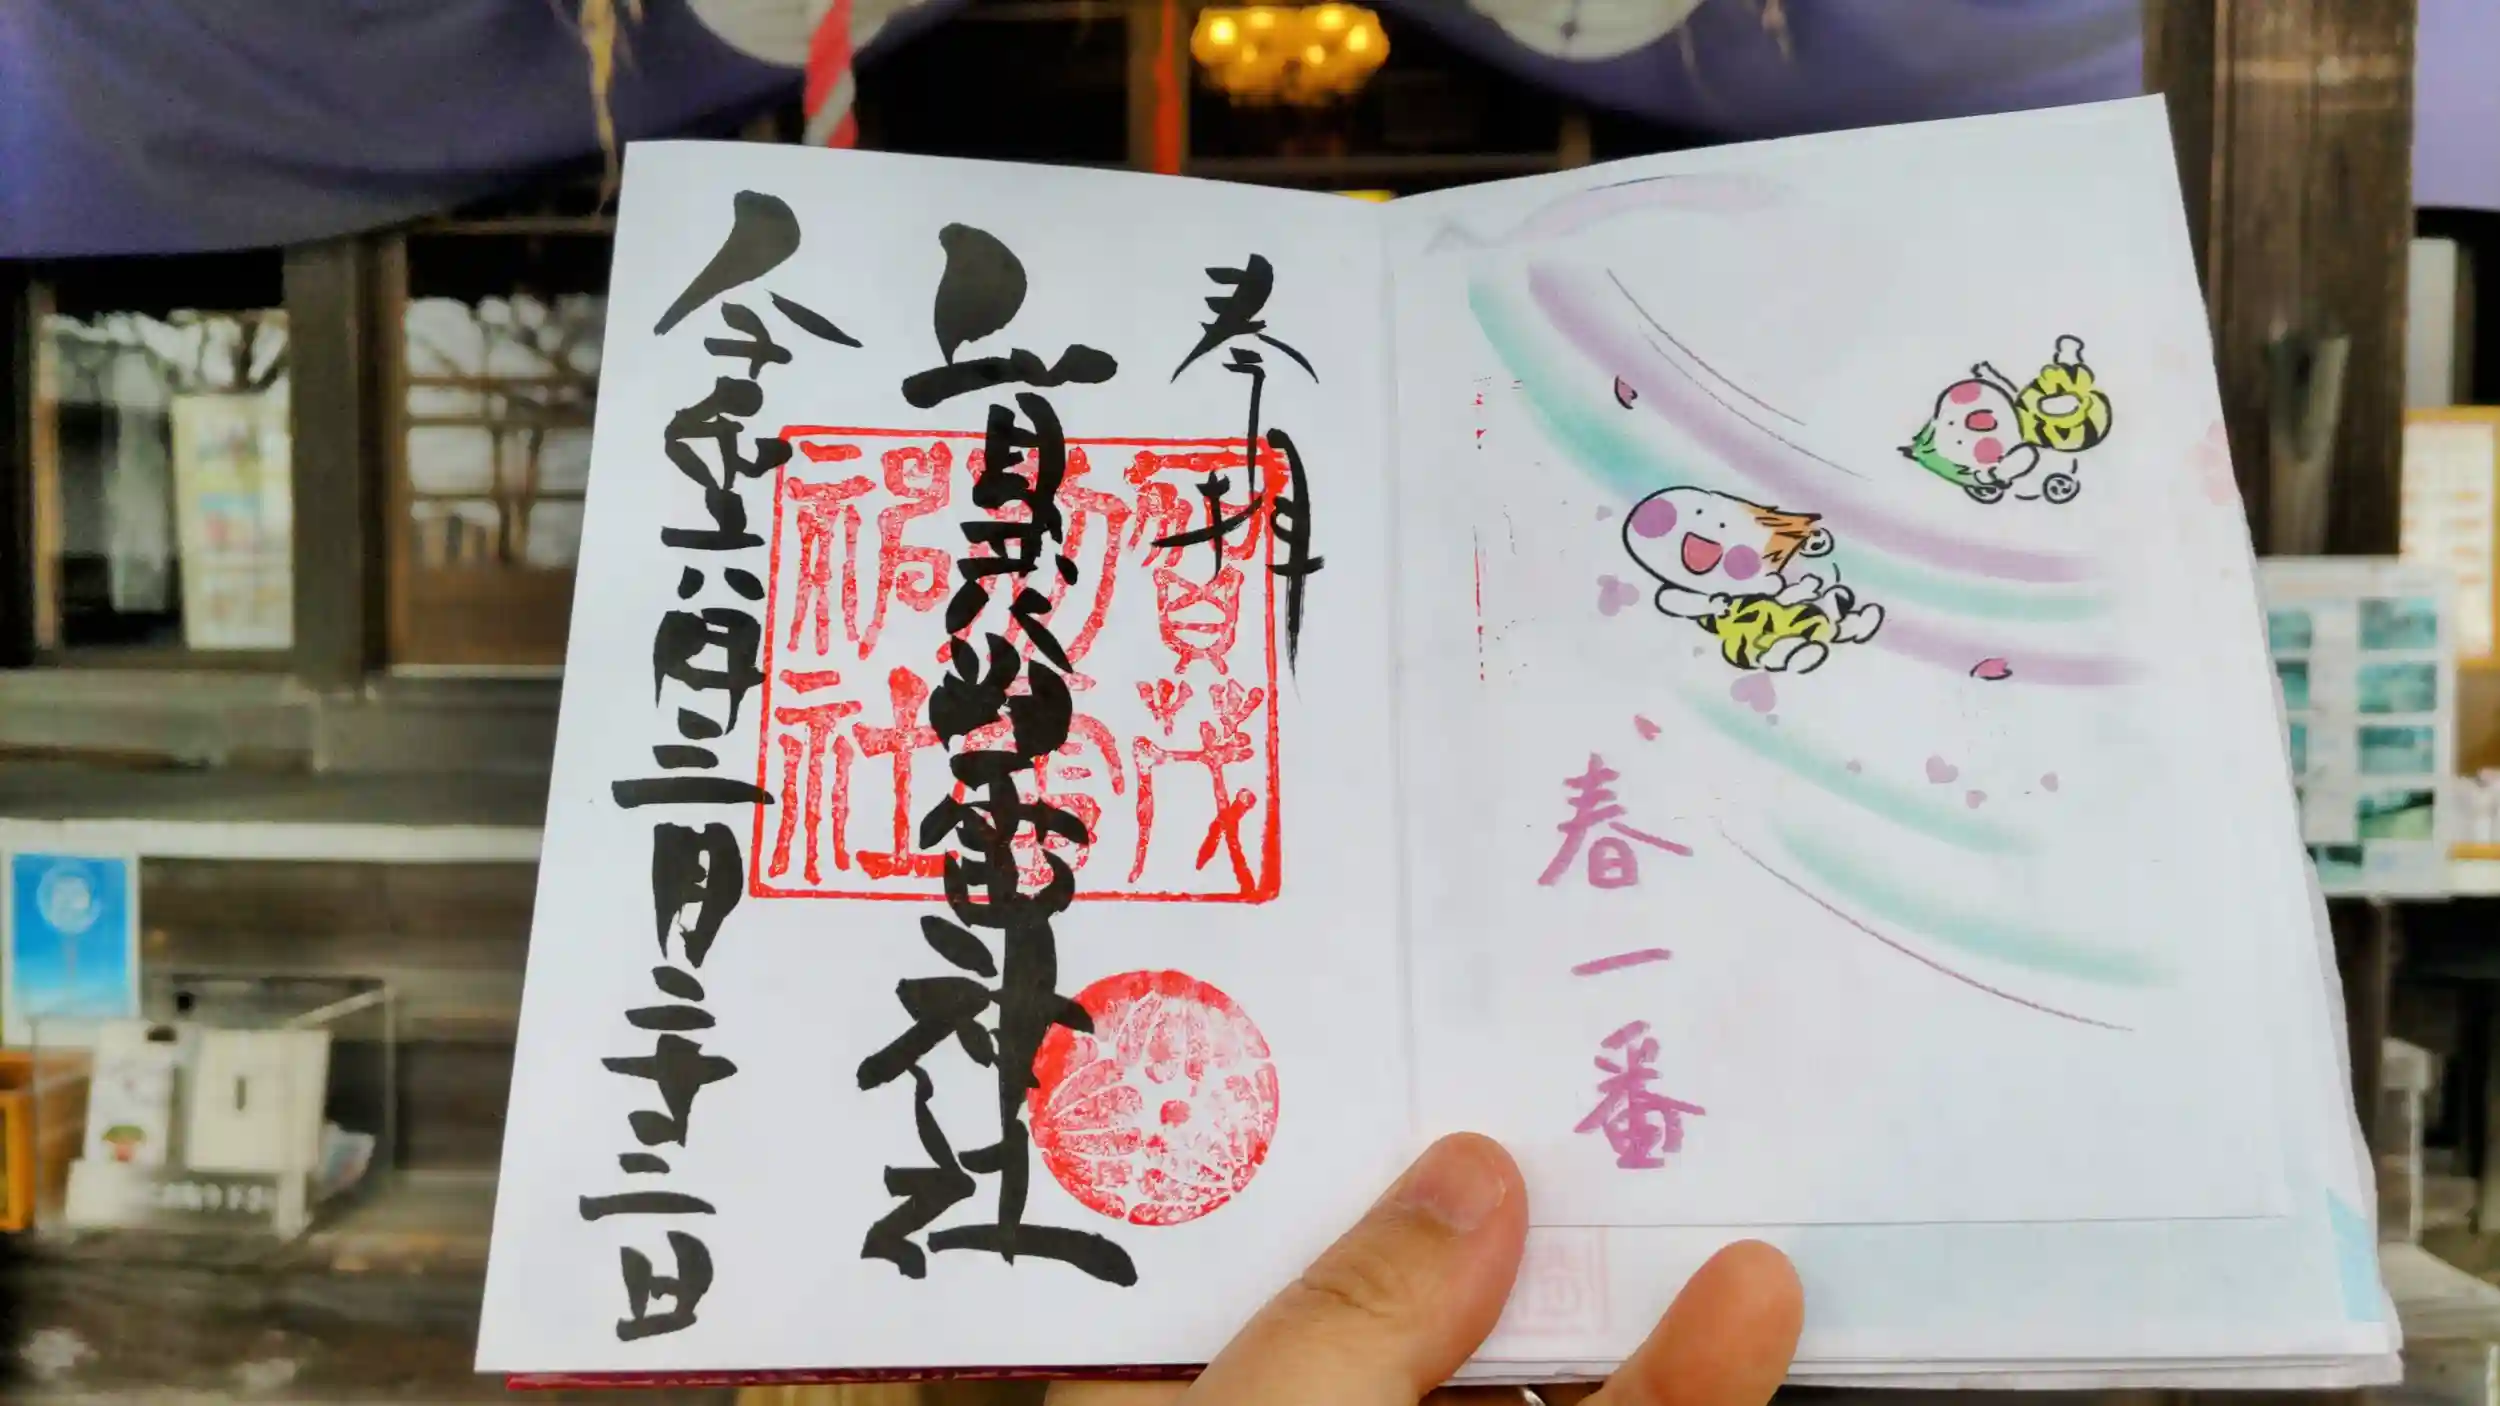 奉拝
賀茂別雷神社
令和六年三月二十三日
賀茂
別雷
神社
春一番